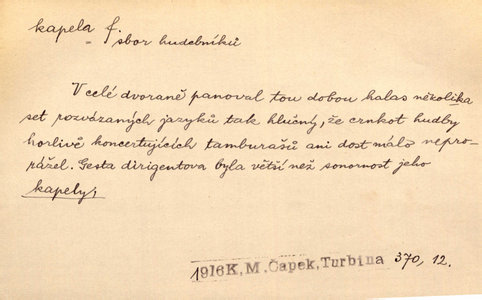 kapela f.
= sbor hudebníků
V celé dvoraně panoval tou dobou halas několika
set rozvázaných jazyků tak hlučný, že crnkot hudby
horlivě koncertujících tamburašů ani dost málo nepro-
rážel. Gesta dirigentova byla větší než sonornost jeho
kapely;
1916K, M. Čapek, Turbina 370, 12.